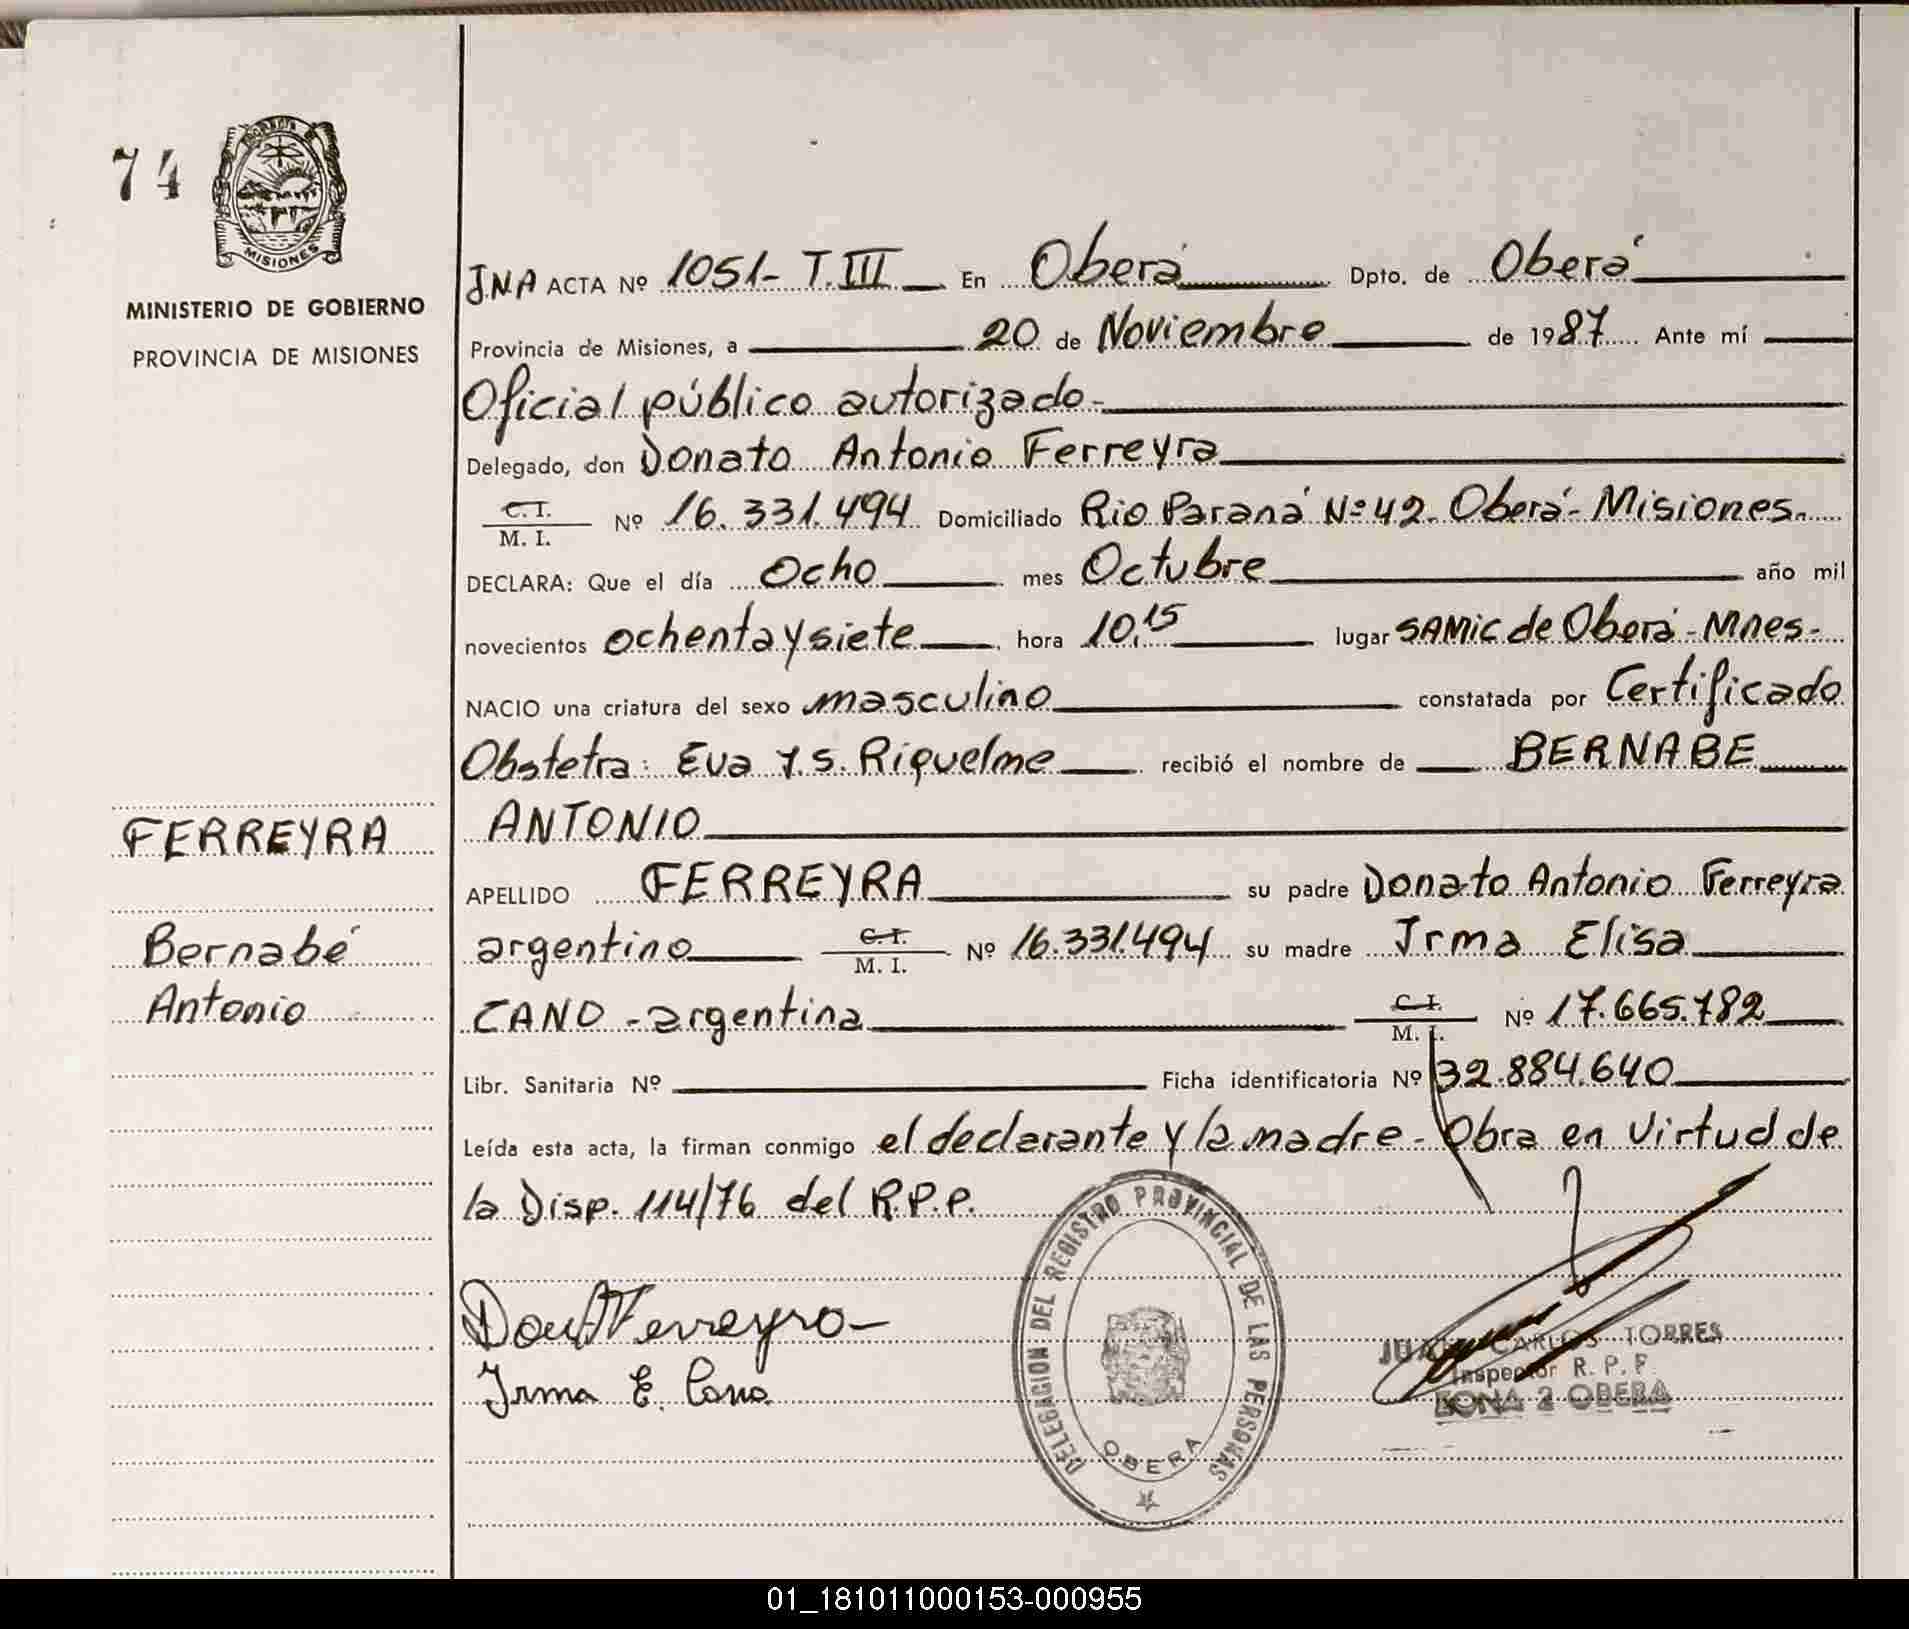 74
MISIONES
MINISTERIO DE GOBIERNO
PROVINCIA DE MISIONES
FERREYRA
Bernabé
Antonio
JNA ACTA Nº 1051- T. III En Oberá Dpto. de Oberá
Provincia de Misiones, a 20 de Noviembre de 1987 Ante mí
Oficial público autorizado-
Delegado, don Donato Antonio Ferreyra
C. I. / M. I. Nº 16.331.494 Domiciliado Rio Paraná Nº 42. Oberá- Misiones.
DECLARA: Que el día Ocho mes Octubre año mil
novecientos ochenta y siete hora 10,15 lugar SAMIC de Oberá - Mnes-
NACIO una criatura del sexo masculino constatada por Certificado
Obstetra: Eva Y.S. Riquelme recibió el nombre de BERNABE
ANTONIO
APELLIDO FERREYRA su padre Donato Antonio Ferreyra
argentino C. I. / M. I. Nº 16.331.494 su madre Irma Elisa
CANO - argentina C. I. / M. I. Nº 17.665.782
Libr. Sanitaria Nº Ficha identificatoria Nº 32.884.640
Leída esta acta, la firman conmigo el declarante y la madre- Obra en virtud de
la Disp. 114/76 del R.P.P.
Ferreyra
Irma E. Cano.
DELEGACION DEL REGISTRO PROVINCIAL DE LAS PERSONAS
OBERA
JUAN CARLOS TORRES
Inspector R. P. P.
ZONA 2 OBERA
01_181011000153-000955